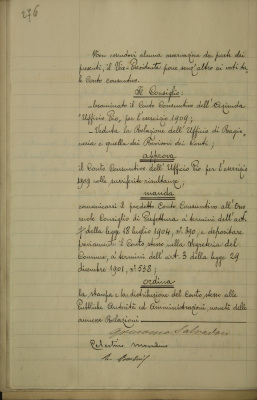 276
Non essendovi alcuna osservazione da parte dei
presenti, il Vice-Presidente pone senz'altro ai voti det-
to Conto consuntivo.
Il Consiglio:
Esaminato il Conto Consuntivo dell'Azienda
"Ufficio Pio, per l'esercizio 1909;
Veduta la Relazione dell'Ufficio di Ragio-
neria e quella dei Revisori dei Conti;
approva
il Conto Consuntivo dell'Ufficio Pio per l'esercizio
1909 nelle surriferite risultanze;
manda
comunicarsi il predetto Conto Consuntivo all'Ono-
revole Consiglio di Prefettura ai termini dell'art.
della legge 18 luglio 1904, n. 390, e depositare
il Conto stesso nella Segreteria del
Comune, ai termini dell'art. 3 della legge 29
dicembre 1901, n. 538;
ordina
la stampa e la distribuzione del Conto stesso alle
Pubbliche Autorità ed Amministrazioni, muniti delle
annesse Relazioni.
Celestino